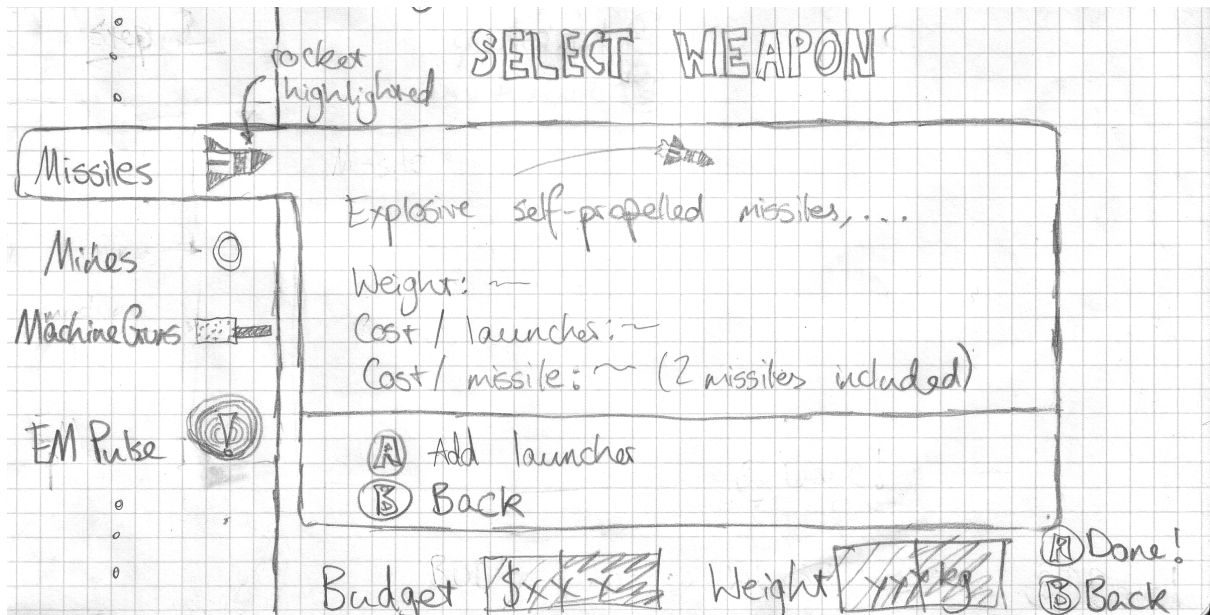 SELECT WEAPON
rocket
highlighted
Missiles
Mines
Machine Guns
EM Pulse
Explosive self-propelled missiles,...
Weight: ~
Cost / launcher: ~
Cost / missile: ~ (2 missiles included)
A Add launcher
B Back
Budget $xxx
Weight yyy kg
A Done!
B Back